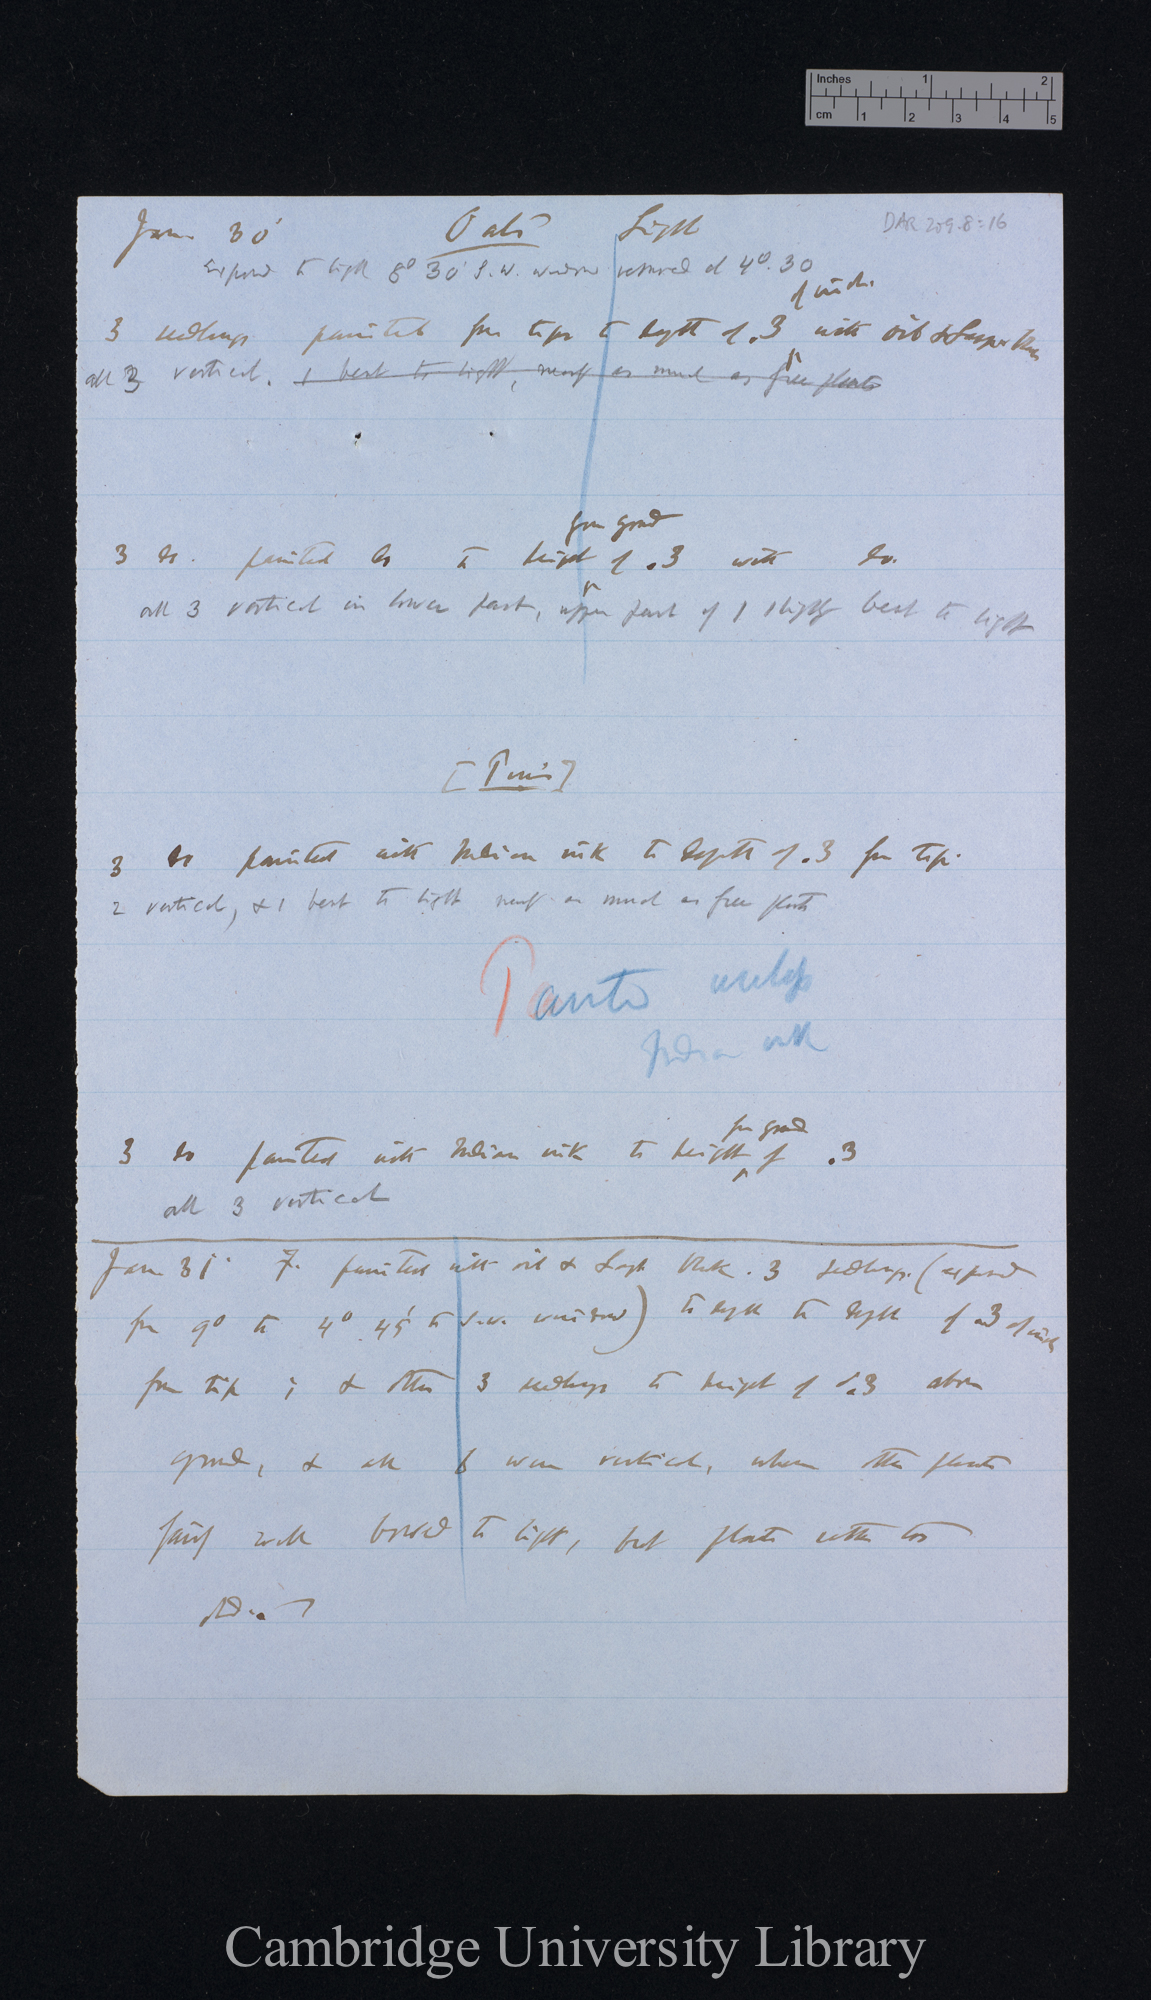 Inches 1 2
cm 1 2 3 4 5
DAR 209.8:16
Jan. 30' Oats Light
Exposed to light 8° 30' S.W. window removed at 4°.30
of inch.
3 seedlings painted from tips to depth of .3 with oil & Lamp black
all 3 vertical. 1 bent to light, nearly as much as free plants
from ground
3 do. painted do to height of .3 with do.
all 3 vertical in lower part, upper part of 1 slightly bent to light
3 do painted with Indian ink to depth of .3 from tip.
2 vertical, & 1 bent to light nearly as much as free plants
Indian ink
from ground
3 do painted with Indian ink to height of .3
all 3 vertical
Jan 31' F. painted with oil & Lamp black. 3 seedlings. (exposed
from 9° to 4° 45' to S.W. window) to depth to depth of .3 of inch
from tip ; & other 3 seedlings to height of .3 above
ground, & all 6 were vertical, when other plants
fairly well bowed to light, but plants rather too
old.
Cambridge University Library